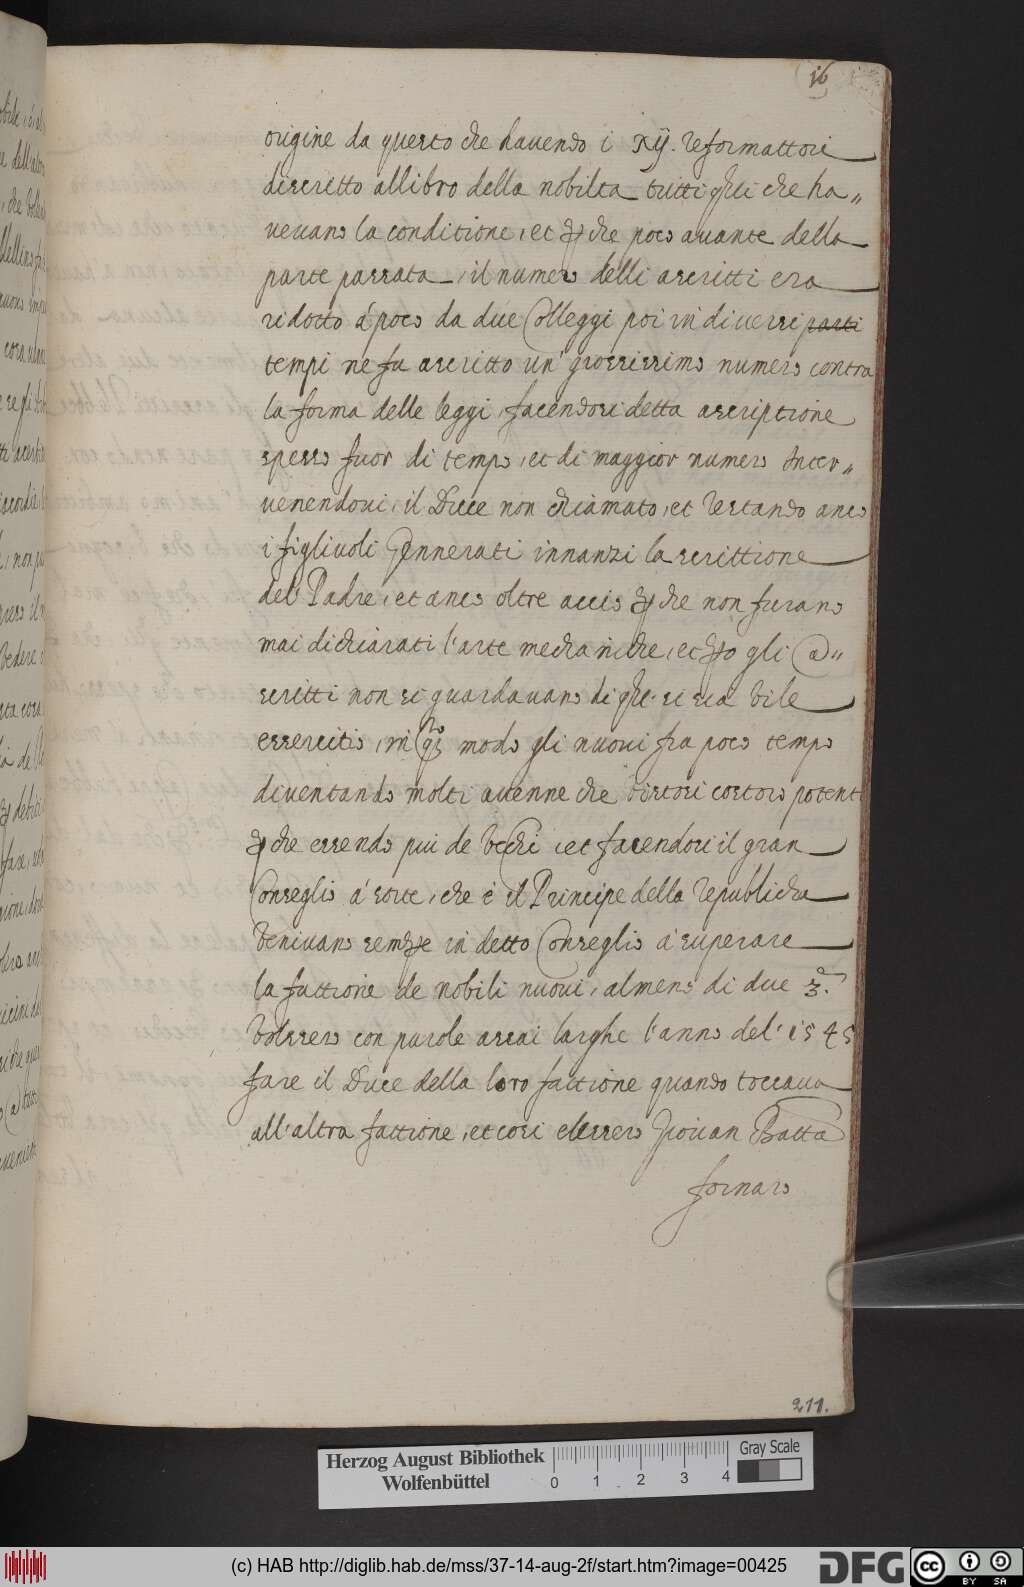 16
origine da questo che havendo i xij. reformattori
discritto al libro della nobilta tutti qlli che ha„
vevano la conditione, et che poco avante della
parte passata, il numero delli ascritti era
ridotto á poco da due Colleggi poi in diversi parti
tempi ne fu ascritto un' grossissimo numero contra
la forma delle leggi, facendosi detta ascriptione
spesso fuor di tempo, et di maggior numero inter„
venendovi, il Duce non chiamato, et restando anco
i figliuoli gennerati innanzi la scrittione
del Padre, et anco oltre accio che non furano
mai dichiarati l'arte mechaniche, et gli a„
scritti non si guardavano di qlche si sia vile
essercitio, in modo gli nuovi fra poco tempo
diventando molti avenne che costoro potenti
che essendo piu de vechi, et facendosi il gran
Conseglio á sorte, che é il Principe della republicha
venivano sempre in detto Conseglio á superare
la fattione de nobili nuovi, almeno di due 3.
volsero con parole assai larghe l'anno del' 1545
fare il Duce della loro fattione quando toccava
all'altra fattione, et cosi elessero Giovan Batta
fornaro
211.
Herzog August Bibliothek
Wolfenbüttel
0 1 2 3 4
Gray Scale
(c) HAB http://diglib.hab.de/mss/37-14-aug-2f/start.htm?image=00425
DFG
cc BY SA